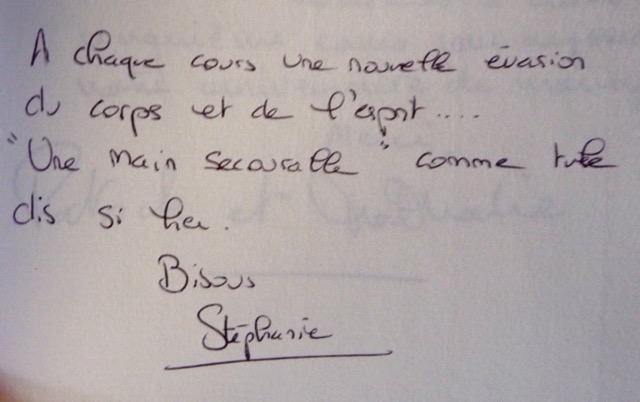 A chaque cours une nouvelle évasion
du corps et de l'esprit....
"Une main secourable" comme tu le
dis si bien.
Bisous
Stéphanie